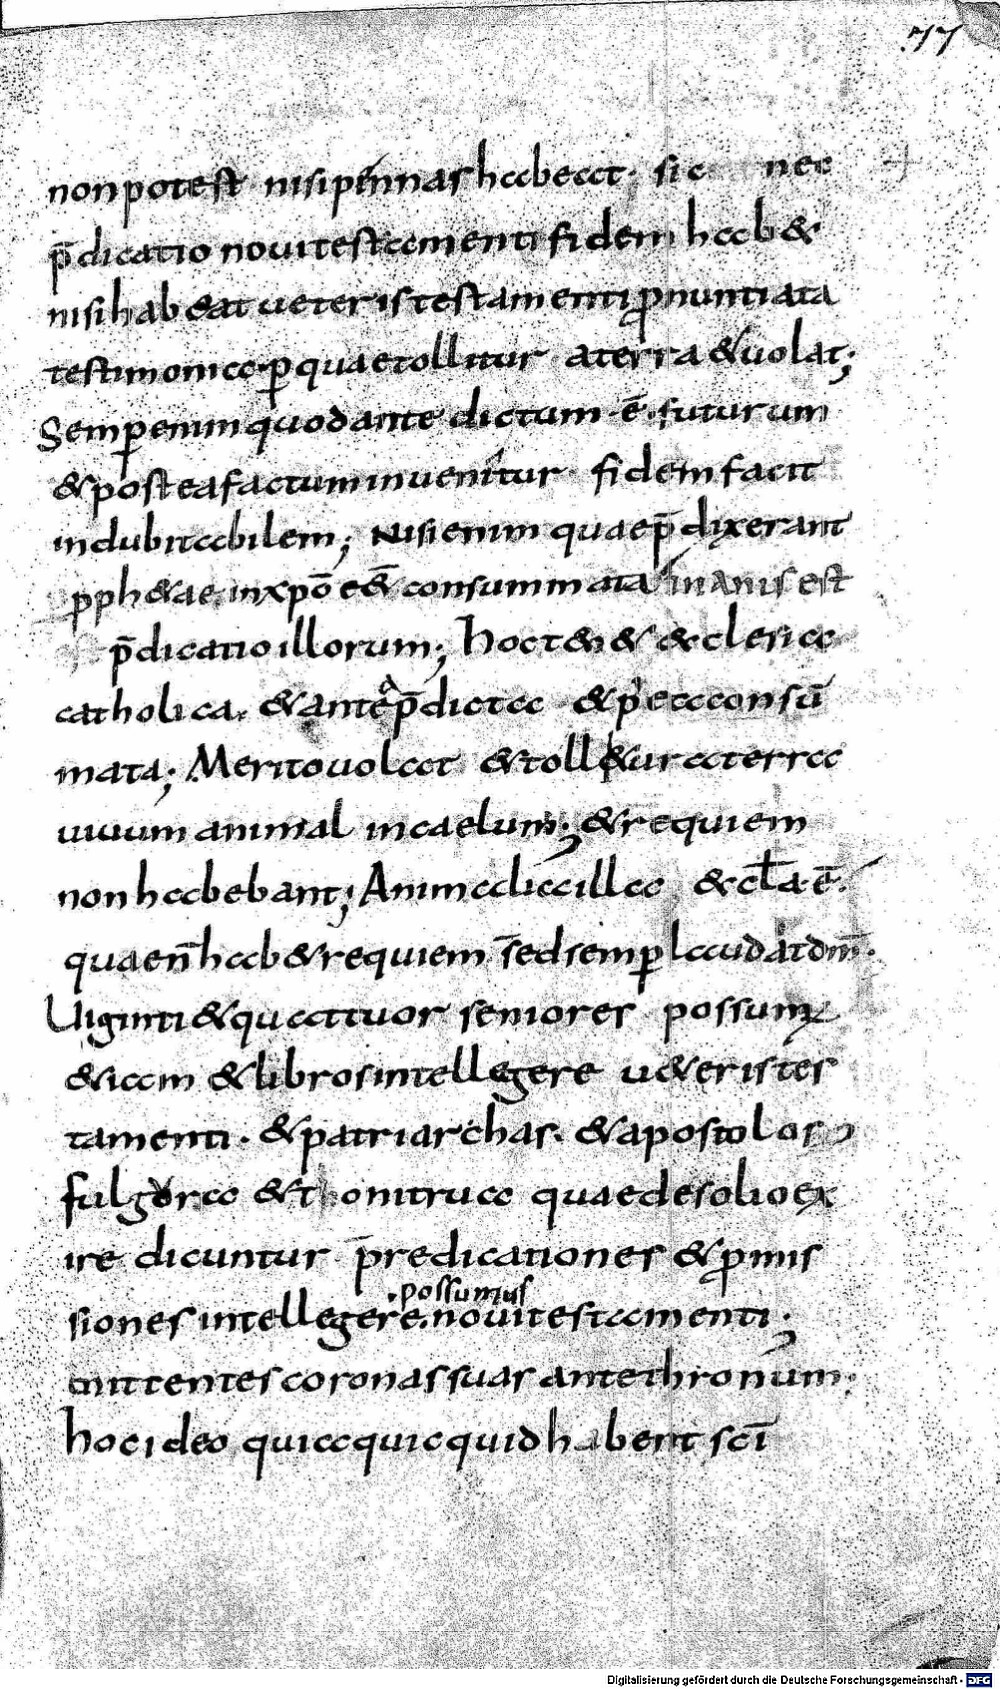 77
non potest nisi pennas habeat. sic nec
p̄dicatio noui testamenti fidem hab&
nisi hab&at ueteris testamenti pnuntiata
testimonia. p quae tollitur a terra & uolat;
Semp enim quod ante dictum ē. futurum
& postea factum inuenitur fidem facit
indubitabilem; Nisi enim quae p̄dixerant
pph&ae in xp̄o e&̄ consummata inanis est
p̄dicatio illorum; hoc ten& & aeclesia
catholica. & ante p̄dicta & p ea consū
mata; Merito uolat & toll&ur a terra
uiuum animal in caelum; & requiem
non habebant; Animalia illa & cl̄a ē.
quae n̄ hab& requiem sed semp laudat dm̄.
Uiginti & quattuor seniores possum
& iam & libros intellegere u&eris tes
tamenti. & patriarchas. & apostolos
fulgora & tonitrua quae de solio ex
ire dicuntur predicationes & pmis
possumus
siones intellegere. noui testamenti;
mittentes coronas suas ante thronum.
hoc ideo quia quicquid habent scī
Digitalisierung gefördert durch die Deutsche Forschungsgemeinschaft - DFG